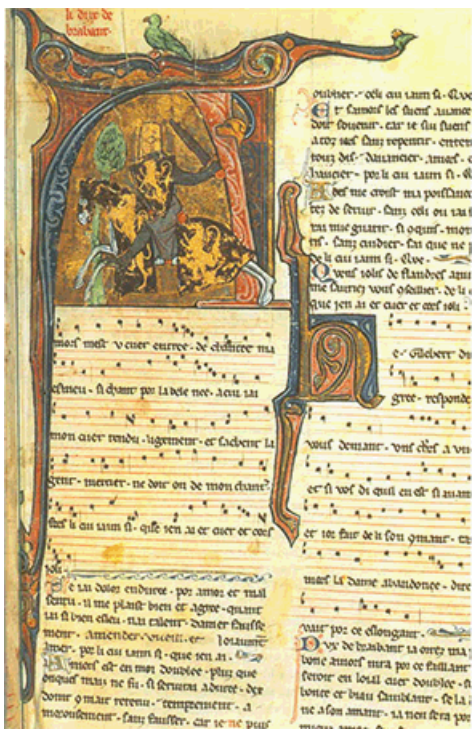 li dux de
brabant.
A
mors mest v cuer entree. de chanter ma
esmeu. si chant por la bele nee. a cui iai
mon cuer rendu. ligement. et sachent la
gent. mercier. ne doit on de mon chant.
fors li cui iaim si. que ien ai et cuer et cors
ioli.
Se iai dolor enduree. por amor et mal
sentu. il me plaist bien et agree. quant
iai si bien esleu. nai talent. damer fausse
ment. amender vueill. et loiaument
amer. por li cui iaim si. que ien ai.
Amors est en moi doublee. plus que
onques mais ne fu. si seruirai a duree. dex
doint qi mait retenu. temprement. a
morousement. sanz fausser. car ie ne puis
oublier. celi cui iaim si. Que
Et samors les suens auance
doit souenir. car ie sui suens
a toz iors sanz repentir. enten
touz dis. dauancier. amies. c
haucier. por li cui iaim si. Q
des me croist ma poissance
tez de seruir. sanz celi ou iai
rai me guarir. si
sanz cuidier. sai que ne
de li cui iaim si. Que.
Quens iolis de flandres ami
me saurez vous oseillier. de li c
que ien ai et cuer et cors ioli.
H
e Gilebert di
gree. responde
vous demant. vns chrs a vn
et si vos di quil en est si auan
et ior fait de li son comant. ta
mais la dame abandonee. dire
vait por ce esloignant.
Dvx de brabant ia orrez ma
bone amors nira por ce faillant
seroit en loial cuer doublee. si
bonte et biau samblant. se la
ne a son amant. ia nen sera po